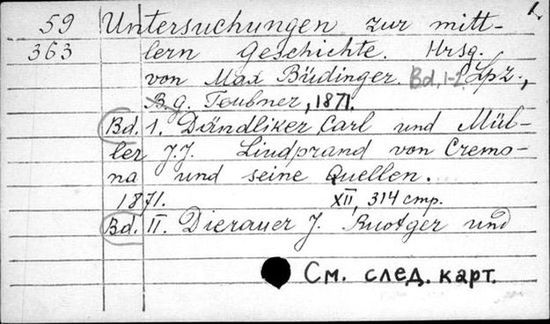 59 Untersuchungen zur mitt- 1.
363 lern Geschichte. Hrsg.
von Max Büdinger. Bd. 1-2. Lpz.,
B.g. Teubner, 1871.
Bd. 1. Dändliker Carl und Mül-
ler J.J. Liudprand von Cremo-
na und seine Quellen.
1871. XII, 314 стр.
Bd. II. Dierauer J. Ruotger und
См. след. карт.